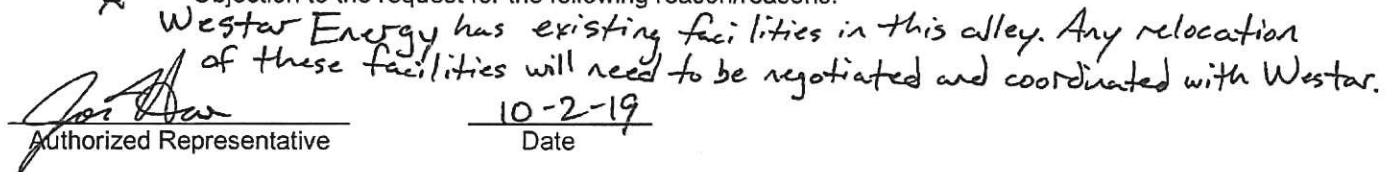 Objection to the request for the following reason/reasons:
Westar Energy has existing facilities in this alley. Any relocation
of these facilities will need to be negotiated and coordinated with Westar.
10-2-19
Authorized Representative Date